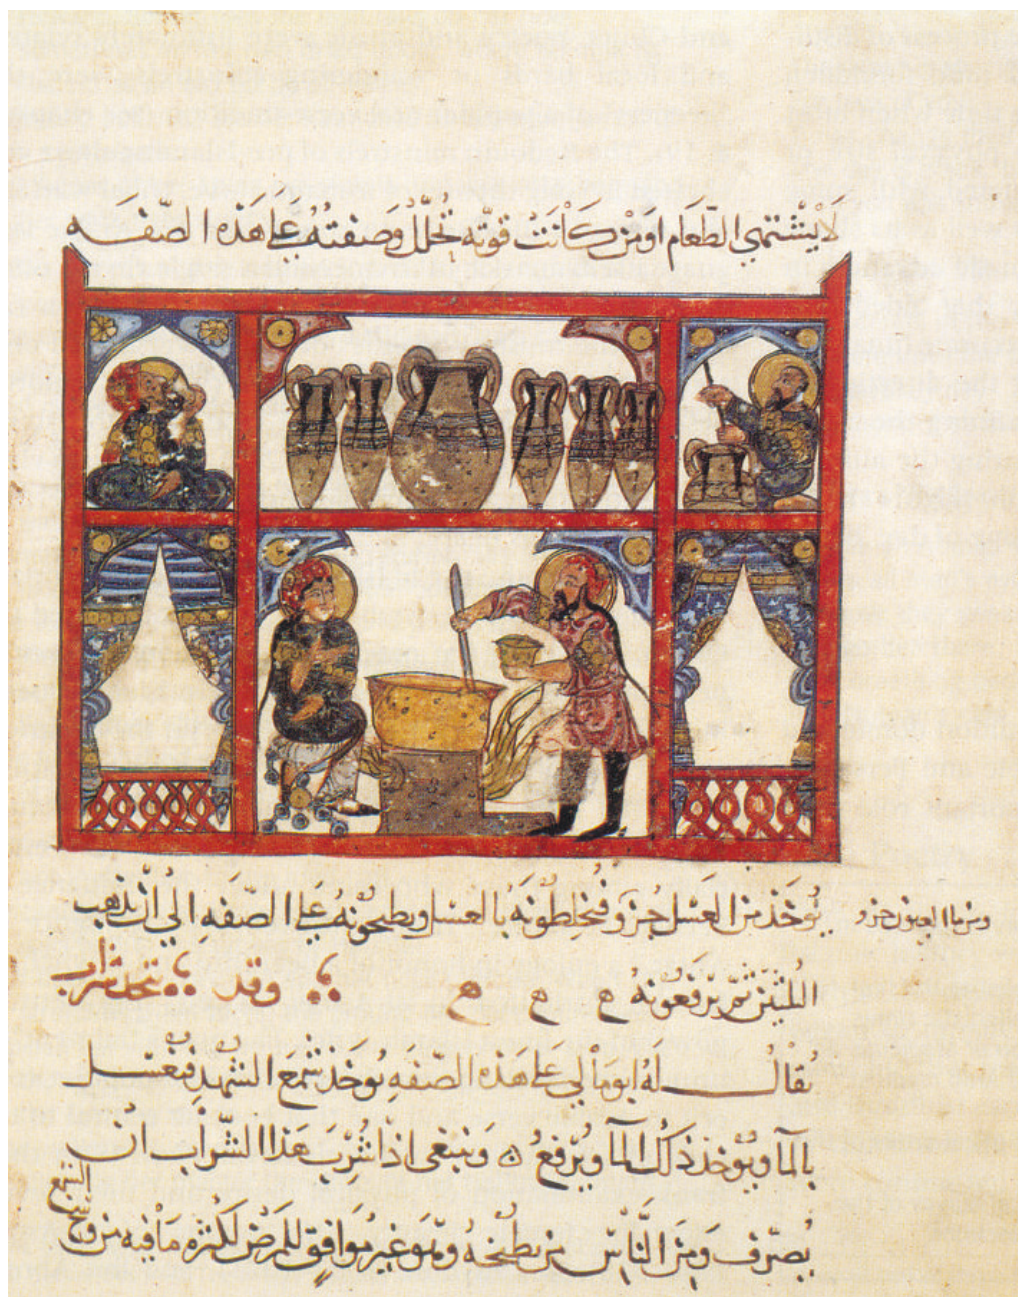 لا يشتهي الطعام او من كانت قوته تحلل وصنعته على هذه الصفه
يوخذ من العسل جزو فيخلطونه بالعسل ويطبخونه على الصفه الي ان يذهب
ومن ما العيون جزو
الثلثين ثم يرفعونه ه ه ه وقد يتخذ شراب
يقال له ابومالي على هذه الصفه يوخذ شمع الشهد فيغسل
بالما ويوخذ ذلك الما ويرفع ه وينبغي اذا شرب هذا الشراب ان
يصرف ومن الناس من يطبخه وهو غير موافق للمرضى لكثره ما فيه من وسخ
الشمع